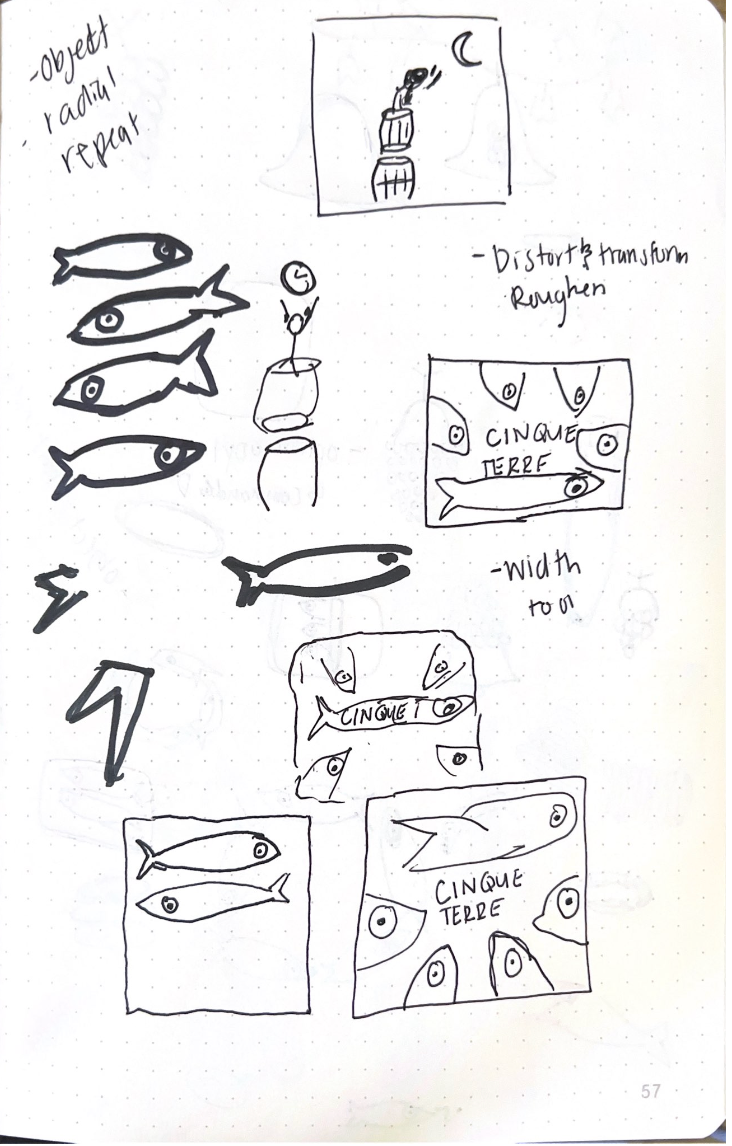 -Object
- radial
repeat
-Distort & transform
Roughen
CINQUE
TERRE
-Width
tool
CINQUE T
CINQUE
TERRE
57